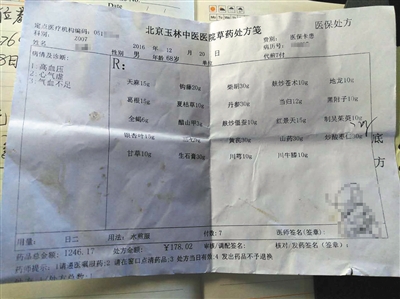 北京玉林中医医院草药处方笺
医保处方
定点医疗机构编码:051
科别: 2007
2016 年 12 月 20 日
医保卡患
病历号:
姓名
性别 男 年龄68岁
单位
代煎7付
病情及诊断:
R:
1 高血压
2 心气虚
3 气血不足
天麻15g 钩藤30g 柴胡20g 麸炒苍术15g 地龙10g
葛根15g 夏枯草10g 丹参30g 当归12g
全蝎6g 醋山甲5g 麸炒僵蚕10g 红景天15g 制吴茱萸10g
银杏叶10g 黄花30g 山药30g 炒酸枣仁30g
甘草10g 生石膏30g 川芎10g 川牛膝10g
底方
用量: 日二 用法: 水煎服 付数:7 医师签名(签章):
药品总金额: 1246.17 处方金额: ¥178.02 审核/调配签名: 核对/发药签名(签章):
药师提示: 1请遵医嘱服药;2请在窗口点清药品;3处方当日有效;4发出药品不予退换